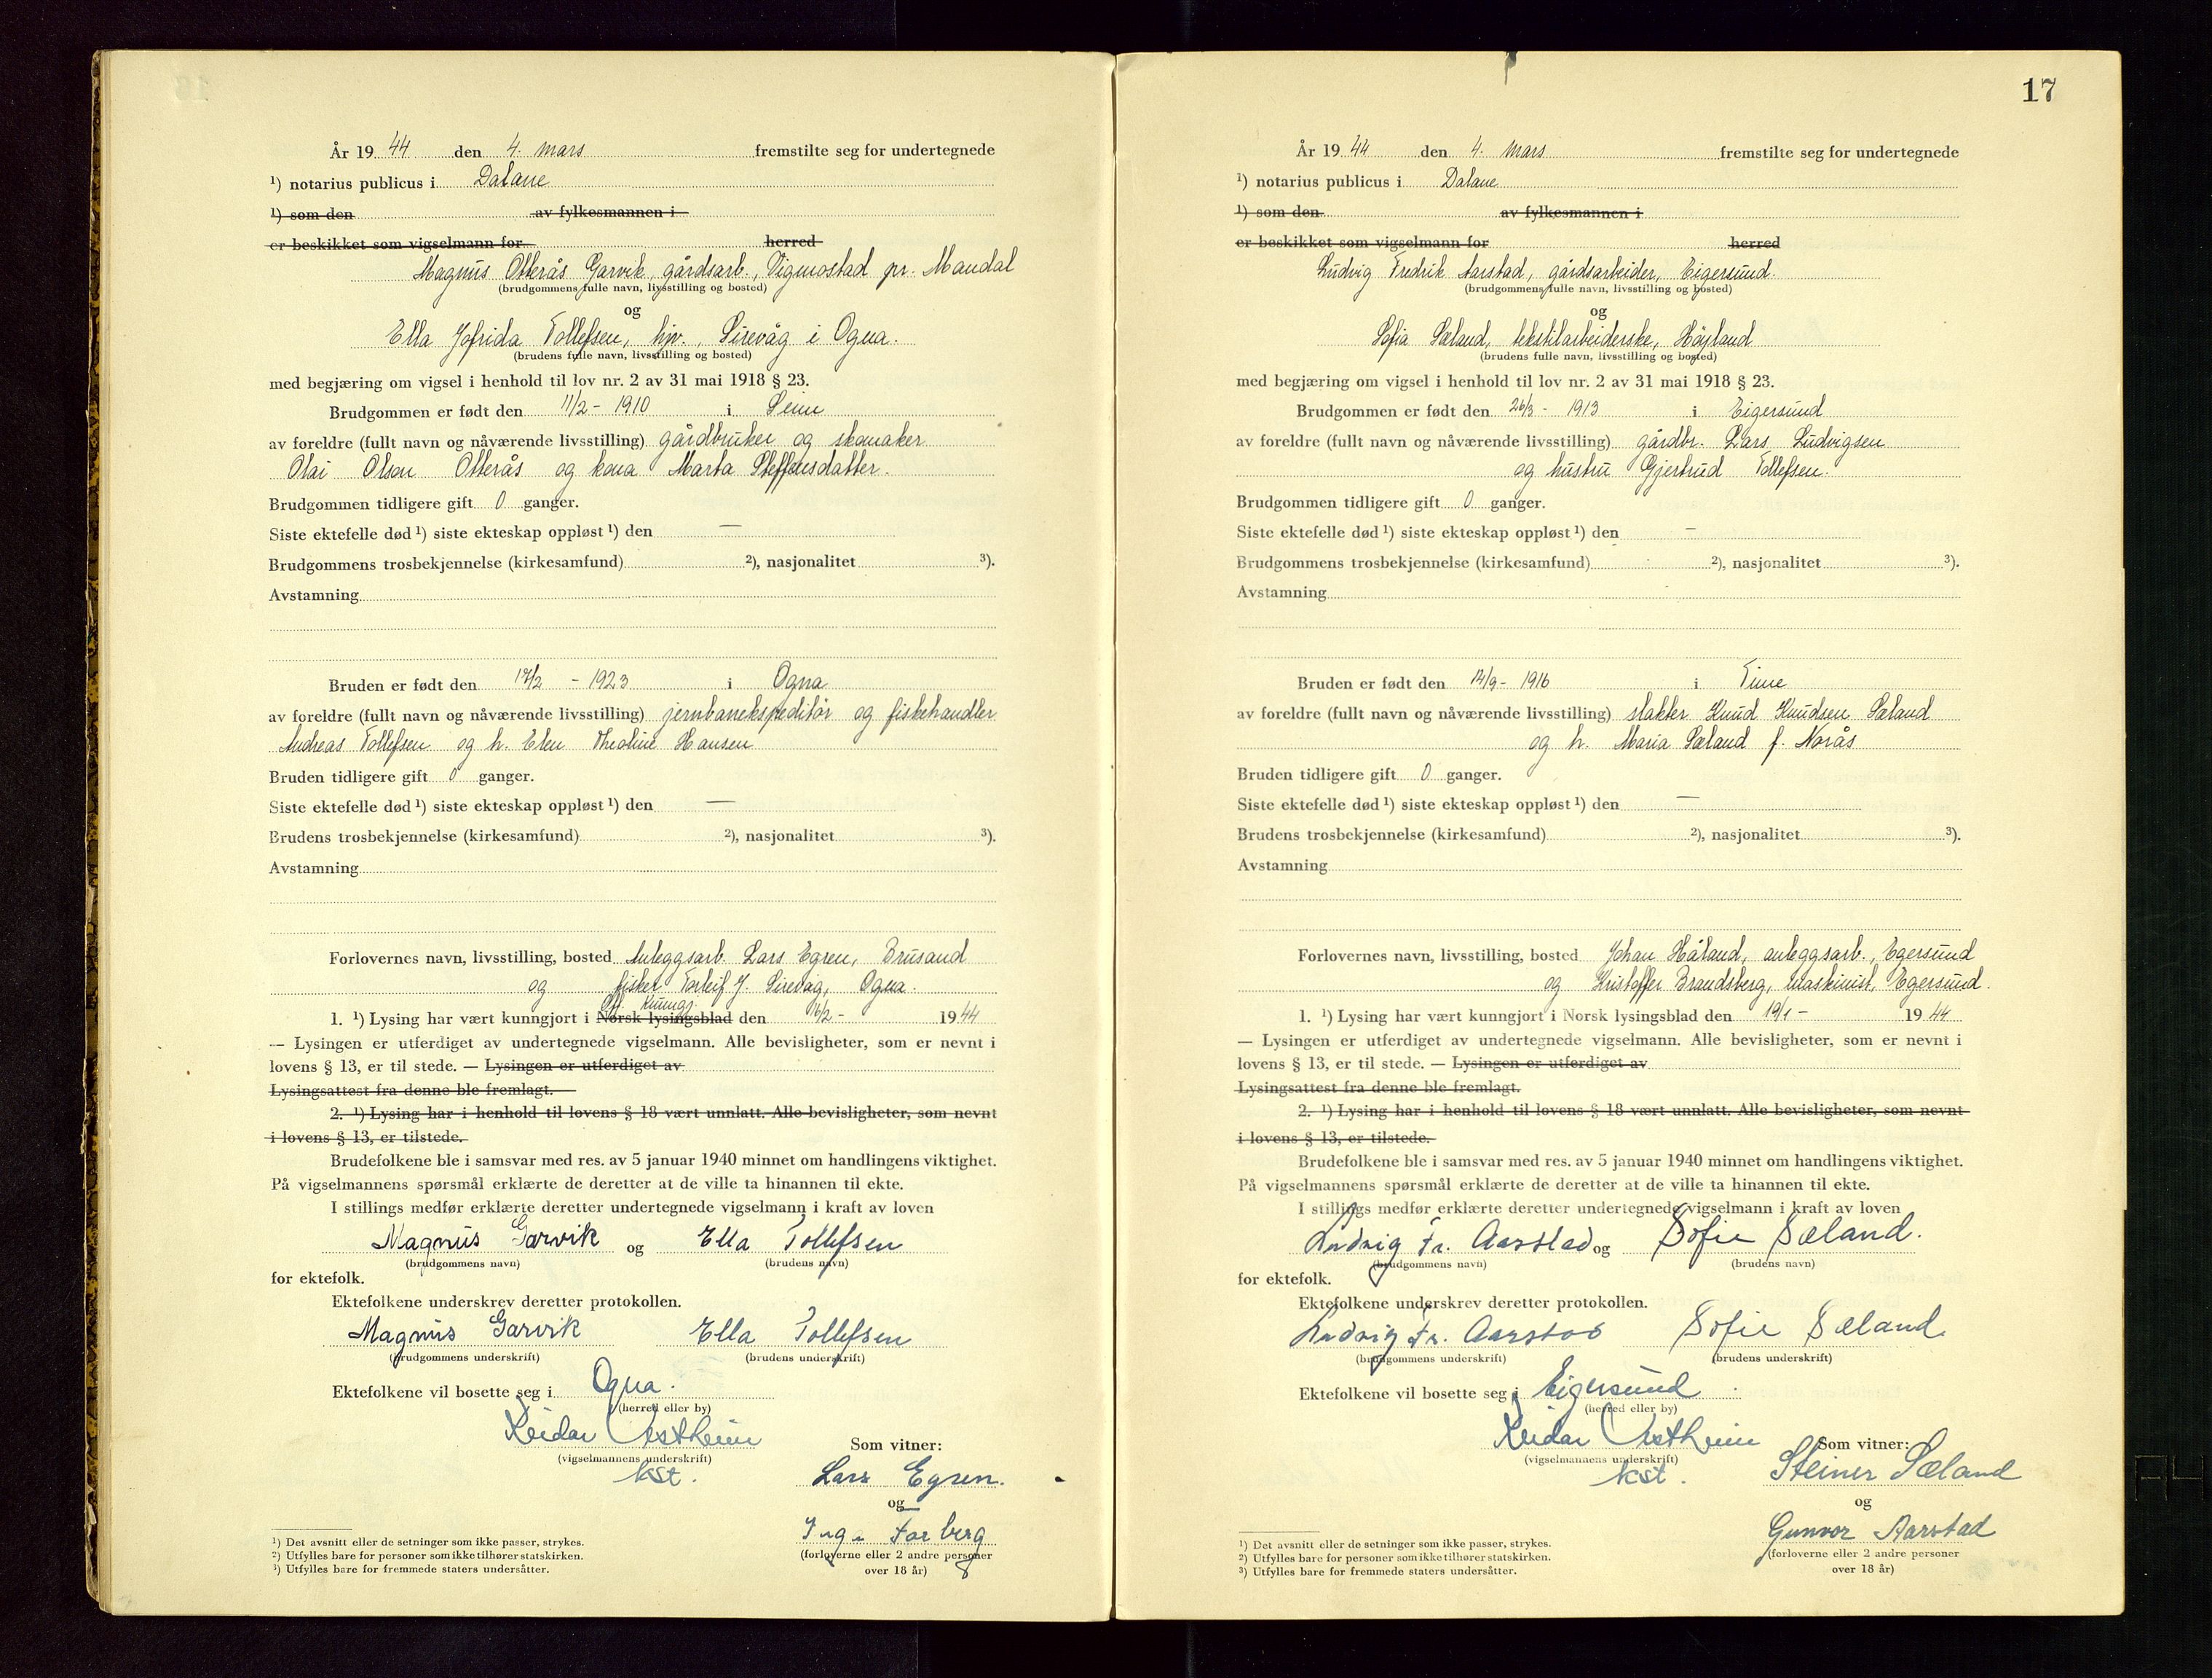 År 19 44 den 4. mars fremstilte seg for undertegnede
¹) notarius publicus i Dalane
¹) som den av fylkesmannen i
er beskikket som vigselmann for herred
Magnus Otterås Garvik, gårdsarb., Vigmostad pr. Mandal
(brudgommens fulle navn, livsstilling og bosted)
og
Ella Jofrida Tollefsen, hjv., Sirevåg i Ogna.
(brudens fulle navn, livsstilling og bosted)
med begjæring om vigsel i henhold til lov nr. 2 av 31 mai 1918 § 23.
Brudgommen er født den 11/2 - 1910 i
av foreldre (fullt navn og nåværende livsstilling) gårdbruker og skomaker
Olai Olson Otterås og kona Marta Steffensdatter.
Brudgommen tidligere gift 0 ganger.
Siste ektefelle død ¹) siste ekteskap oppløst ¹) den —
Brudgommens trosbekjennelse (kirkesamfund) ²), nasjonalitet ³).
Avstamning
Bruden er født den - 1923 i Ogna
av foreldre (fullt navn og nåværende livsstilling) jernbanekspeditör og fiskehandler
Andreas Tollefsen og h. Elen Theoline Hansen
Bruden tidligere gift 0 ganger.
Siste ektefelle død ¹) siste ekteskap oppløst ¹) den —
Brudens trosbekjennelse (kirkesamfund) ²), nasjonalitet ³).
Avstamning
Forlovernes navn, livsstilling, bosted Anleggsarb. Lars Egren, Brusand
og fisker Torleif J. Sirevåg, Ogna.
Off. kunngj.
1. ¹) Lysing har vært kunngjort i Norsk lysingsblad den 16/2 - 19 44
— Lysingen er utferdiget av undertegnede vigselmann. Alle bevisligheter, som er nevnt i
lovens § 13, er til stede. — Lysingen er utferdiget av
Lysingsattest fra denne ble fremlagt. —
2. ¹) Lysing har i henhold til lovens § 18 vært unnlatt. Alle bevisligheter, som nevnt
i lovens § 13, er tilstede.
Brudefolkene ble i samsvar med res. av 5 januar 1940 minnet om handlingens viktighet.
På vigselmannens spørsmål erklærte de deretter at de ville ta hinannen til ekte.
I stillings medfør erklærte deretter undertegnede vigselmann i kraft av loven
Magnus Garvik og Ella Tollefsen
(brudgommens navn) (brudens navn)
for ektefolk.
Ektefolkene underskrev deretter protokollen.
Magnus Garvik Ella Tollefsen
(brudgommens underskrift) (brudens underskrift)
Ektefolkene vil bosette seg i Ogna.
(herred eller by)
Reidar Astheim
(vigselmannens underskrift)
kst.
Som vitner:
Lars Egren.
og
Inga Torberg
(forloverne eller 2 andre personer
over 18 år)
¹) Det avsnitt eller de setninger som ikke passer, strykes.
²) Utfylles bare for personer som ikke tilhører statskirken.
³) Utfylles bare for fremmede staters undersåtter.
17
År 19 44 den 4. mars fremstilte seg for undertegnede
¹) notarius publicus i Dalane
¹) som den av fylkesmannen i
er beskikket som vigselmann for herred
Ludvig Fredrik Aarstad, gårdsarbeider, Eigersund.
(brudgommens fulle navn, livsstilling og bosted)
og
Sofia Sæland, tekstilarbeiderske, Höyland
(brudens fulle navn, livsstilling og bosted)
med begjæring om vigsel i henhold til lov nr. 2 av 31 mai 1918 § 23.
Brudgommen er født den 26/3 - 1913 i Eigersund
av foreldre (fullt navn og nåværende livsstilling) gårdbr. Lars Ludvigsen
og hustru Gjertrud Tollefsen.
Brudgommen tidligere gift 0 ganger.
Siste ektefelle død ¹) siste ekteskap oppløst ¹) den —
Brudgommens trosbekjennelse (kirkesamfund) ²), nasjonalitet ³).
Avstamning
Bruden er født den 14/9 - 1916 i Time
av foreldre (fullt navn og nåværende livsstilling) slakter Knud Knudsen Sæland
og h. Maria Sæland f. Norås
Bruden tidligere gift 0 ganger.
Siste ektefelle død ¹) siste ekteskap oppløst ¹) den —
Brudens trosbekjennelse (kirkesamfund) ²), nasjonalitet ³).
Avstamning
Forlovernes navn, livsstilling, bosted Johan Håland, anleggsarb., Egersund
og Kristoffer Brandsberg, maskinist, Egersund.
1. ¹) Lysing har vært kunngjort i Norsk lysingsblad den 19/1 - 19 44
— Lysingen er utferdiget av undertegnede vigselmann. Alle bevisligheter, som er nevnt i
lovens § 13, er til stede. — Lysingen er utferdiget av
Lysingsattest fra denne ble fremlagt.
2. ¹) Lysing har i henhold til lovens § 18 vært unnlatt. Alle bevisligheter, som nevnt
i lovens § 13, er tilstede.
Brudefolkene ble i samsvar med res. av 5 januar 1940 minnet om handlingens viktighet.
På vigselmannens spørsmål erklærte de deretter at de ville ta hinannen til ekte.
I stillings medfør erklærte deretter undertegnede vigselmann i kraft av loven
Ludvig Fr. Aarstad og Sofie Sæland.
(brudgommens navn) (brudens navn)
for ektefolk.
Ektefolkene underskrev deretter protokollen.
Ludvig Fr. Aarstad Sofie Sæland.
(brudgommens underskrift) (brudens underskrift)
Ektefolkene vil bosette seg i Eigersund
(herred eller by)
Reidar Astheim
(vigselmannens underskrift)
kst.
Som vitner:
Steiner Sæland
og
Gunvor Aarstad
(forloverne eller 2 andre personer
over 18 år)
¹) Det avsnitt eller de setninger som ikke passer, strykes.
²) Utfylles bare for personer som ikke tilhører statskirken.
³) Utfylles bare for fremmede staters undersåtter.